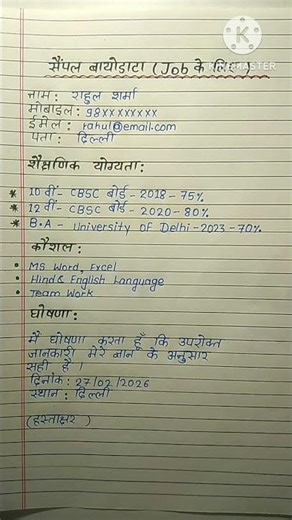 सैंपल बायोडाटा (Job के लिए)
नाम: राहुल शर्मा
मोबाइल: 98xxxxxxxx
ईमेल: rahul@email.com
पता: दिल्ली
शैक्षणिक योग्यता:
* 10वीं- CBSC बोर्ड - 2018 - 75%
* 12वीं- CBSC बोर्ड - 2020 - 80%
* B.A - University OF Delhi -2023 -70%
कौशल:
• MS Word, Excel
• Hind& English Language
• Team Work
घोषणा:
मैं घोषणा करता हूँ कि उपरोक्त
जानकारी मेरे ज्ञान के अनुसार
सही है।
दिनांक: 27/02/2026
स्थान: दिल्ली
(हस्ताक्षर )